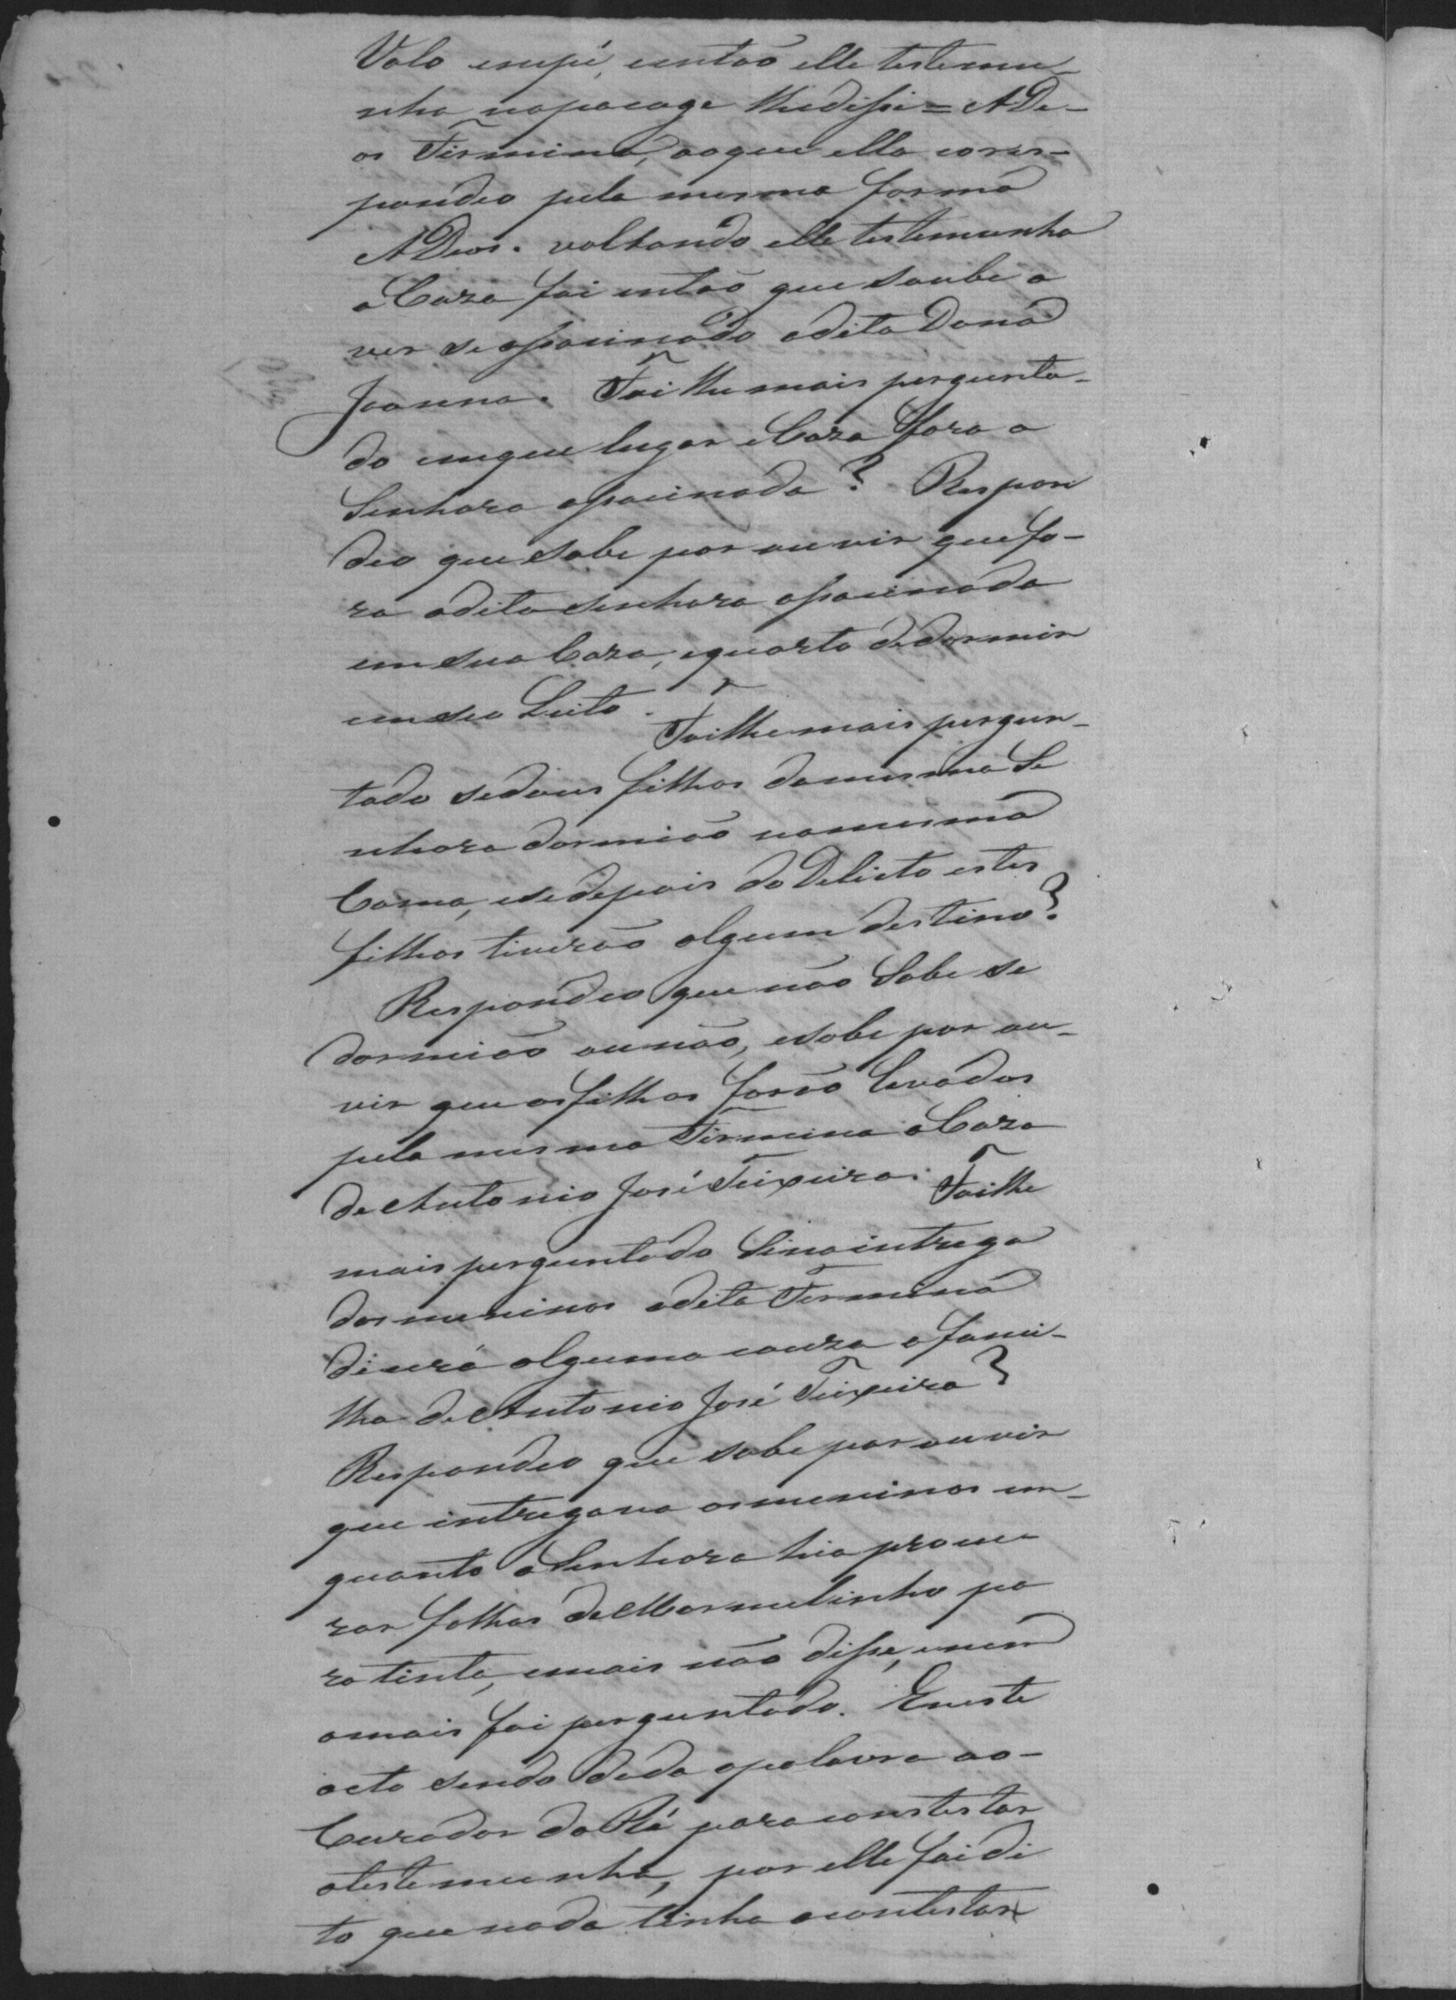 Valo em pé, então elle testemu-
nha napasage lhedisse = ADe-
os Firmina, aoque ella corres-
pondeo pela mesma forma
ADeos. voltando elle testemunha
a Caza foi então que soube a
ver se assacinado adita Dona
Joanna. Foi lhe mais pergunta-
do emque lugar e Caza fora a
Senhora assacinada? Respon
deo que sabe por ouvir que fo-
ra adita senhora assacinada
em sua Caza, equarto de dormir
em seu Leito. Foi lhe mais pergun-
tado sedous filhos damesma Se
nhora dormião namesma
Cama, esedepois do Delicto estes
filhos tiverão algum destino?
Respondeo que não Sabe se
dormião ounão, esabe por ou-
vir que osfilhos forão levados
pela mesma Firmina a Caza
de Antonio José Teixeira. Foi lhe
mais perguntado Sinaintrega
dos meninos adita Firmina
dicera alguma couza a fami-
lha de Antonio José Teixeira?
Respondeo que sabe por ouvir
que intregava osmeninos em-
quanto a Senhora hia procu
rar folhas de Marmelinho pa
ra tinta, emais não disse, enem
amais foi perguntado. Eneste
acto sendo dada apalavra ao-
Curador da Ré para contestar
atestemunha, por elle foi di
to que nada tinha acontestar